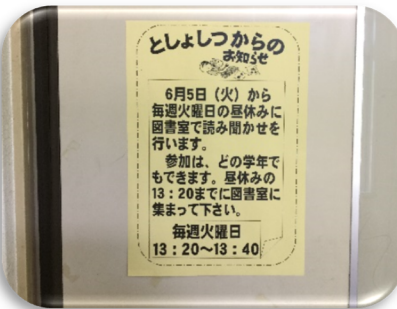 としょしつからの
お知らせ
6月5日（火）から
毎週火曜日の昼休みに
図書室で読み聞かせを
行います。
参加は、どの学年で
もできます。昼休みの
13：20までに図書室に
集まって下さい。
毎週火曜日
13：20～13：40